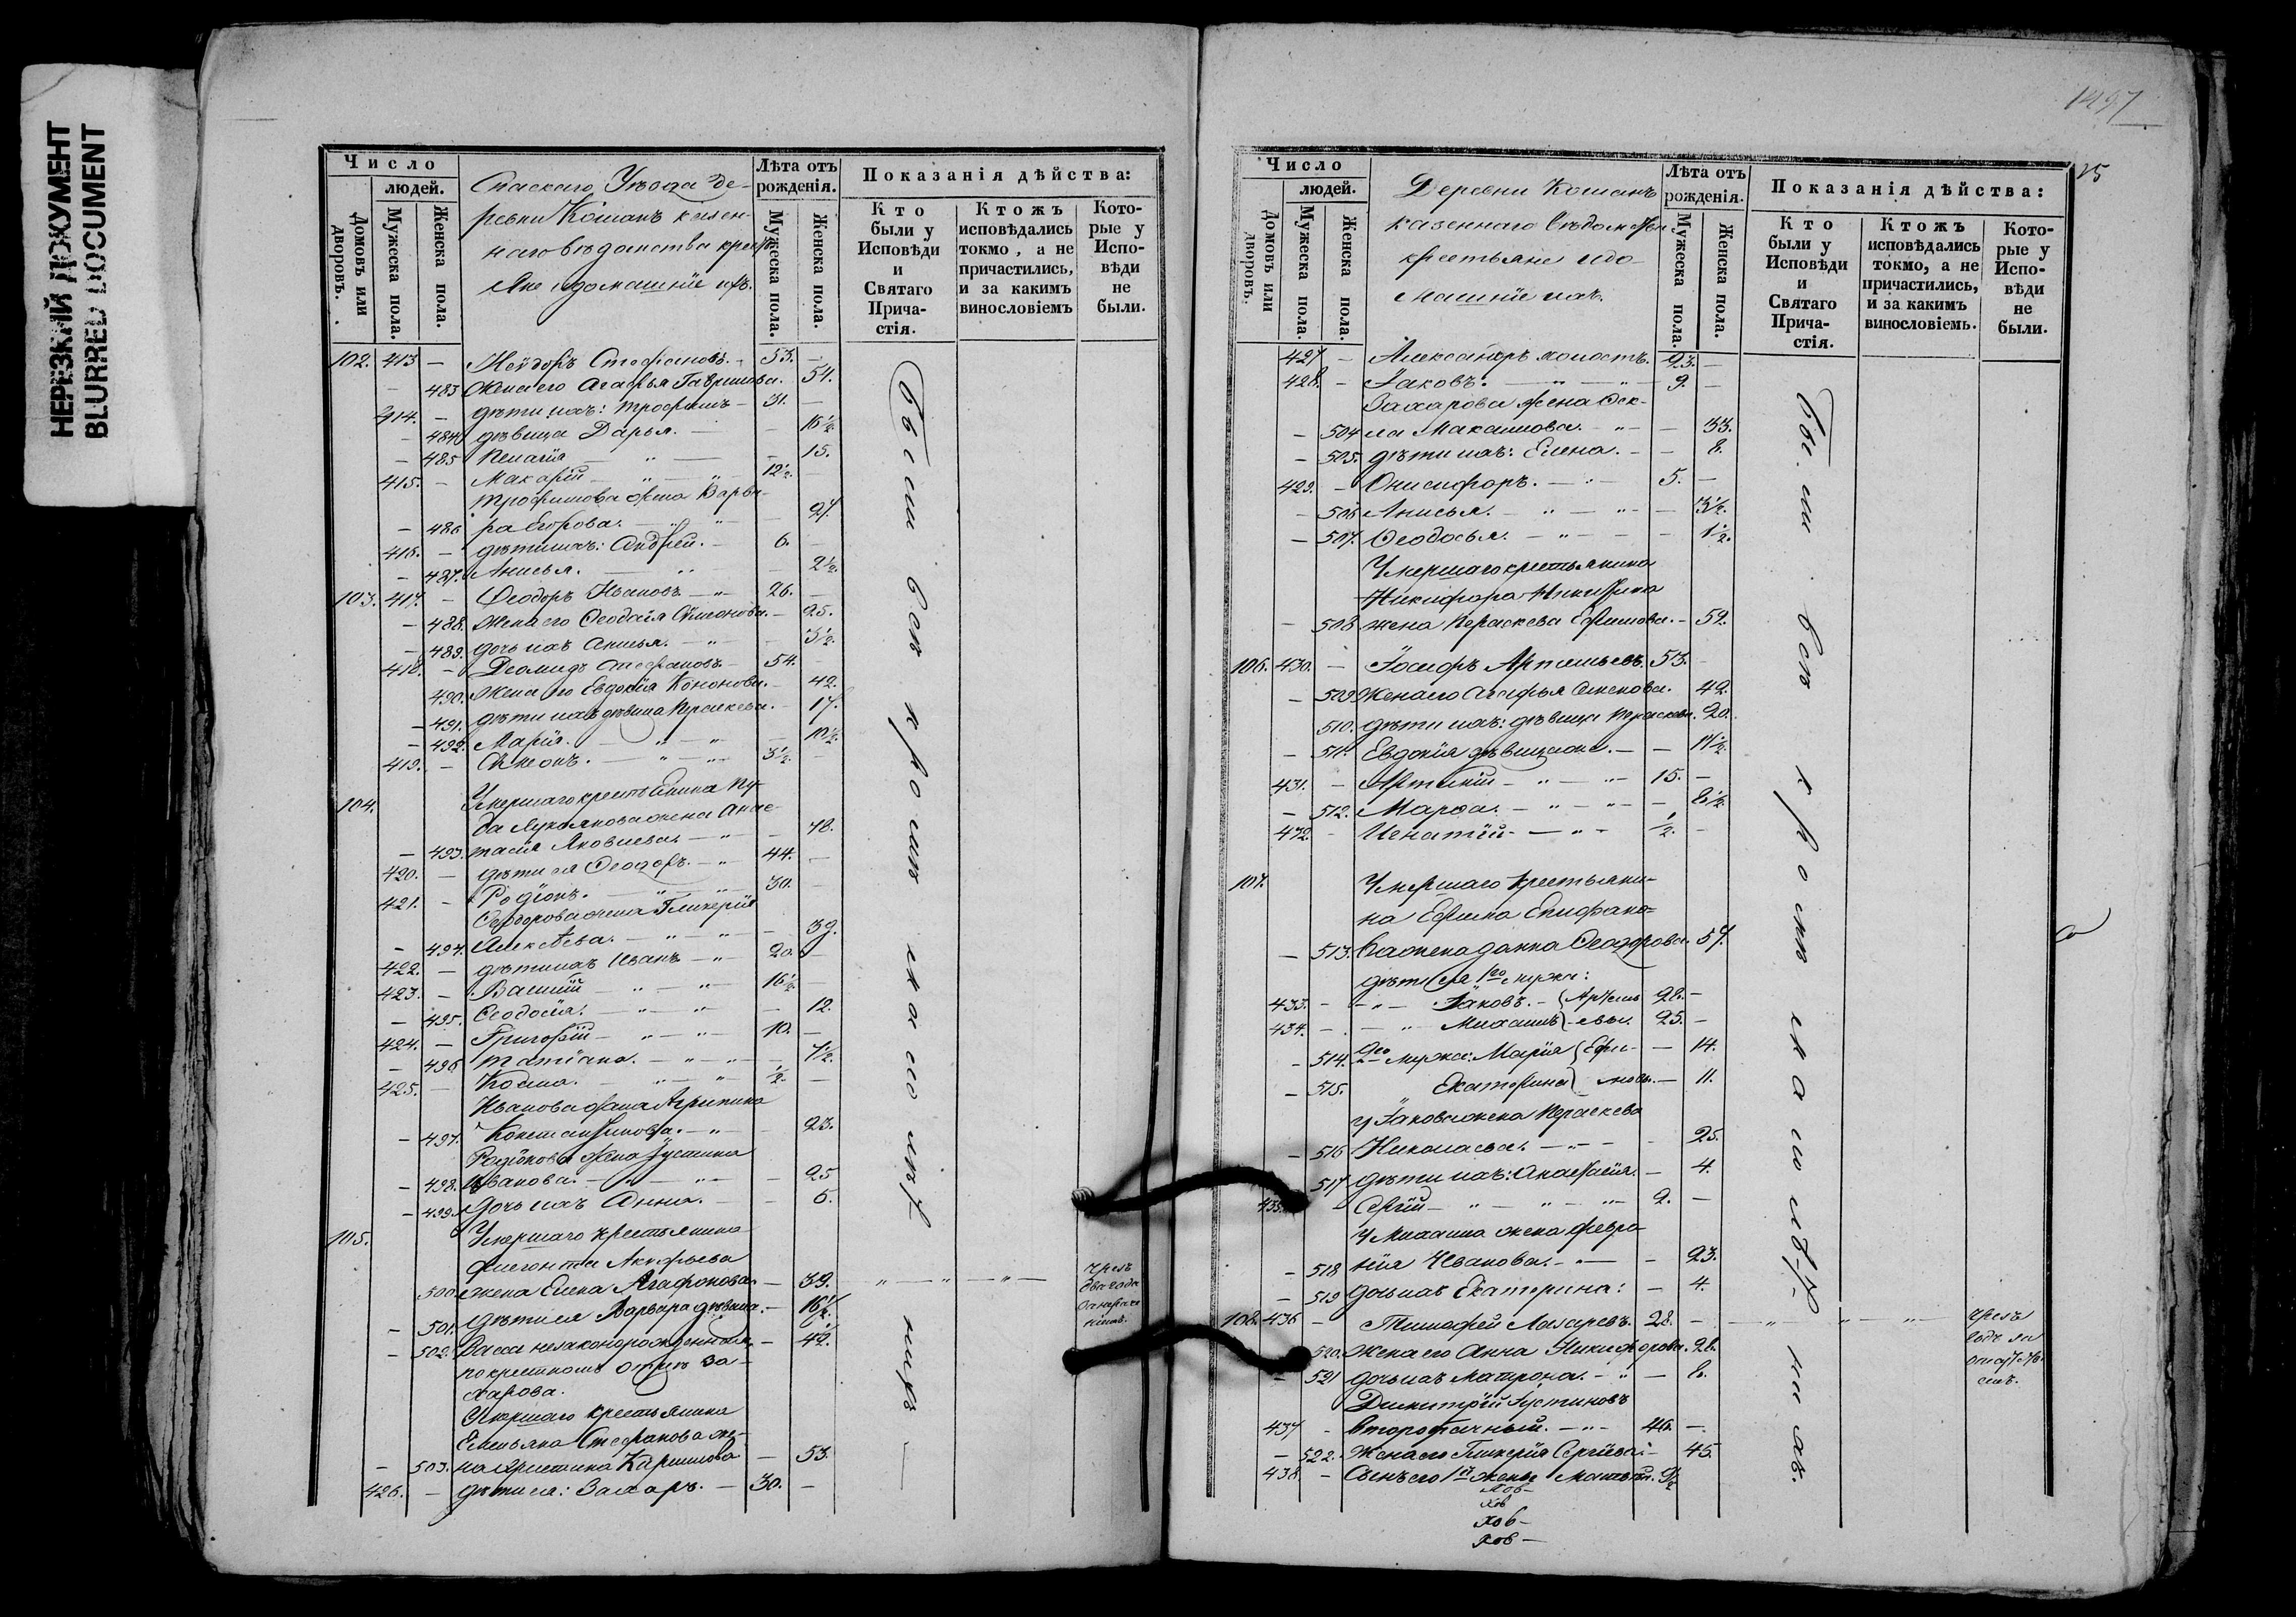 НЕРЕЗКИЙ ДОКУМЕНТ
BLURRED DOCUMENT
Число
людей.
Домовъ или дворовъ.
Мужеска пола.
Женска пола.
Спаскаго Уѣзда де-
ревни Кошанъ казен-
наго вѣдомства крест
яне и домашніе ихъ.
Лѣта отъ рожденія.
Мужеска пола.
Женска пола.
Показанія дѣйства:
Кто были у Исповѣди и Святаго Причастія.
Ктожъ исповѣдались токмо, а не причастились, и за какимъ винословіемъ
Которые у Исповѣди не были.
102. 413 — Стефановъ. — 53. —
483 Жена его Агафья Гаврилова. 54.
414. — дѣти ихъ: Трофимъ — 31. —
— 484 дѣвица Дарья. — — 16½
— 485 Пелагія — „ — — 15.
415. — Макарій — „ — „ 12½.
Трофимова жена Варва-
— 486 ра Егорова. — „ — — 27.
416. — дѣти ихъ: Андрей. — 6. —
— 487. Анисья. — „ — 2½.
103. 417. — Ѳеодоръ Ивановъ — „ 26. —
— 488. жена его Ѳеодосія Симонова. — 25.
— 489. дочь ихъ Анисья. — „ — 3½.
418. — Деомидъ Стефановъ — 54. —
490. Жена его Евдокія Кононова. — 42.
— 491. дѣти ихъ дѣвица Параскева. — 17.
— 492. Марія. — „ — „ — 10½.
419. — Симонъ. — „ — „ 3½. —
104. Умершаго крестьянина
Лукьянова жена Анас-
— 493. тасія Яковлева. — „ — 78.
420. — дѣти ея Ѳеодоръ. — „ 44. —
421. — Родіонъ. — „ — „ 30. —
Ѳеодорова жена Гликерія
— 494. Алексѣева. — „ — „ — 39.
422. — дѣти ихъ Иванъ — „ 20. —
423. — Василій — „ — „ 16½ —
— 495. Ѳеодосія. — „ — „ — 12.
424. — Григорій — „ — „ 10. —
— 496 Татіана. — „ — „ — 7½.
425. — Косма. — „ — „ ½. —
Иванова жена Агрипина
— 497. Константинова. — „ — 23.
Родіонова жена Іустина
— 498. Иванова. — „ — „ — 25
— 499. дочь ихъ Анна. — — 6.
105. Умершаго крестьянина
Флегонта Акифьева
500. жена Елена Агафонова. — 39. „ — „ — „ —
— 501. дѣти ея Варвара дѣвица. — 16½
— 502. Васса незаконорожденная — 4½.
по крестномъ отцѣ За-
харова.
Умершаго крестьянина
Емельяна Стефанова же-
— 503. на Христина Карпилова — 53.
426. — дѣти ея: Захаръ. — 30. —
Были всѣ кромѣ малолѣт нихъ —
чрезъ
два года
1497
25
Число
людей.
Домовъ или дворовъ.
Мужеска пола.
Женска пола.
Деревни Кошанъ
казеннаго вѣдомства
крестьяне и до-
машніе ихъ.
Лѣта отъ рожденія.
Мужеска пола.
Женска пола.
Показанія дѣйства:
Кто были у Исповѣди и Святаго Причастія.
Ктожъ исповѣдались токмо, а не причастились, и за какимъ винословіемъ.
Которые у Исповѣди не были.
427 — Александръ холостъ. 23. —
428. — Іаковъ. — „ — „ 9. —
Захарова жена Ѳек-
— 504 ла Максимова. — „ — 33.
— 505. дѣти ихъ: Елена. — — 8.
429. — Онисифоръ. — „ 5. —
— 506 Анисья. — „ — „ — 3½.
— 507. Ѳеодосья. — „ — — 1½.
Умершаго крестьянина
Никифора Никитина
— 508 жена Параскева Ефимова. — 52.
106. 430. — Іосифъ Артемьевъ. 53. —
— 509 Жена его Агафья Семенова. 42.
510. дѣти ихъ: дѣвица Параскева. 20.
— 511. Евдокія дѣвица же. — — 17½.
431. — Артемій — „ — „ 15. —
— 512. Марѳа. — „ — „ — 8½.
432. — Игнатій — „ — ½. —
107. Умершаго крестьяни-
на Ефима Епифано-
— 513. ва жена Ѳеодорова. 57.
дѣти ея 1го мужа:
433. — „ — Іаковъ. — (Артемь 28. —
434. — — „ Михаилъ) — евы. 25. —
— 514. 2го мужа: Марія (Ефи- — 14.
— 515. Екатерина) мовы. — 11.
У Іакова жена Параскева
— 516 Николаева. — „ — — 25.
517 дѣти ихъ: Анастасія. — 4.
435 — Сергій — „ — „ — „ 2. —
У Михаила жена Февро
— 518 нія Иванова. — „ — — 23.
— 519 дочь ихъ Екатерина: — 4.
108. 436 — Тимофей Лазаревъ. 28. — — „ — „ — „ —
520. Жена его Анна Никифорова. 28.
— 521 дочь ихъ Матрона. — „ — 8.
Димитрій Іустиновъ
437 — второбрачный. — „ — 46. —
— 522. Жена его Гликерія Сергіева — 45.
438 — Сынъ его 1й жены
Были всѣ кромѣ малолѣт нихъ.
чрезъ
годъ за